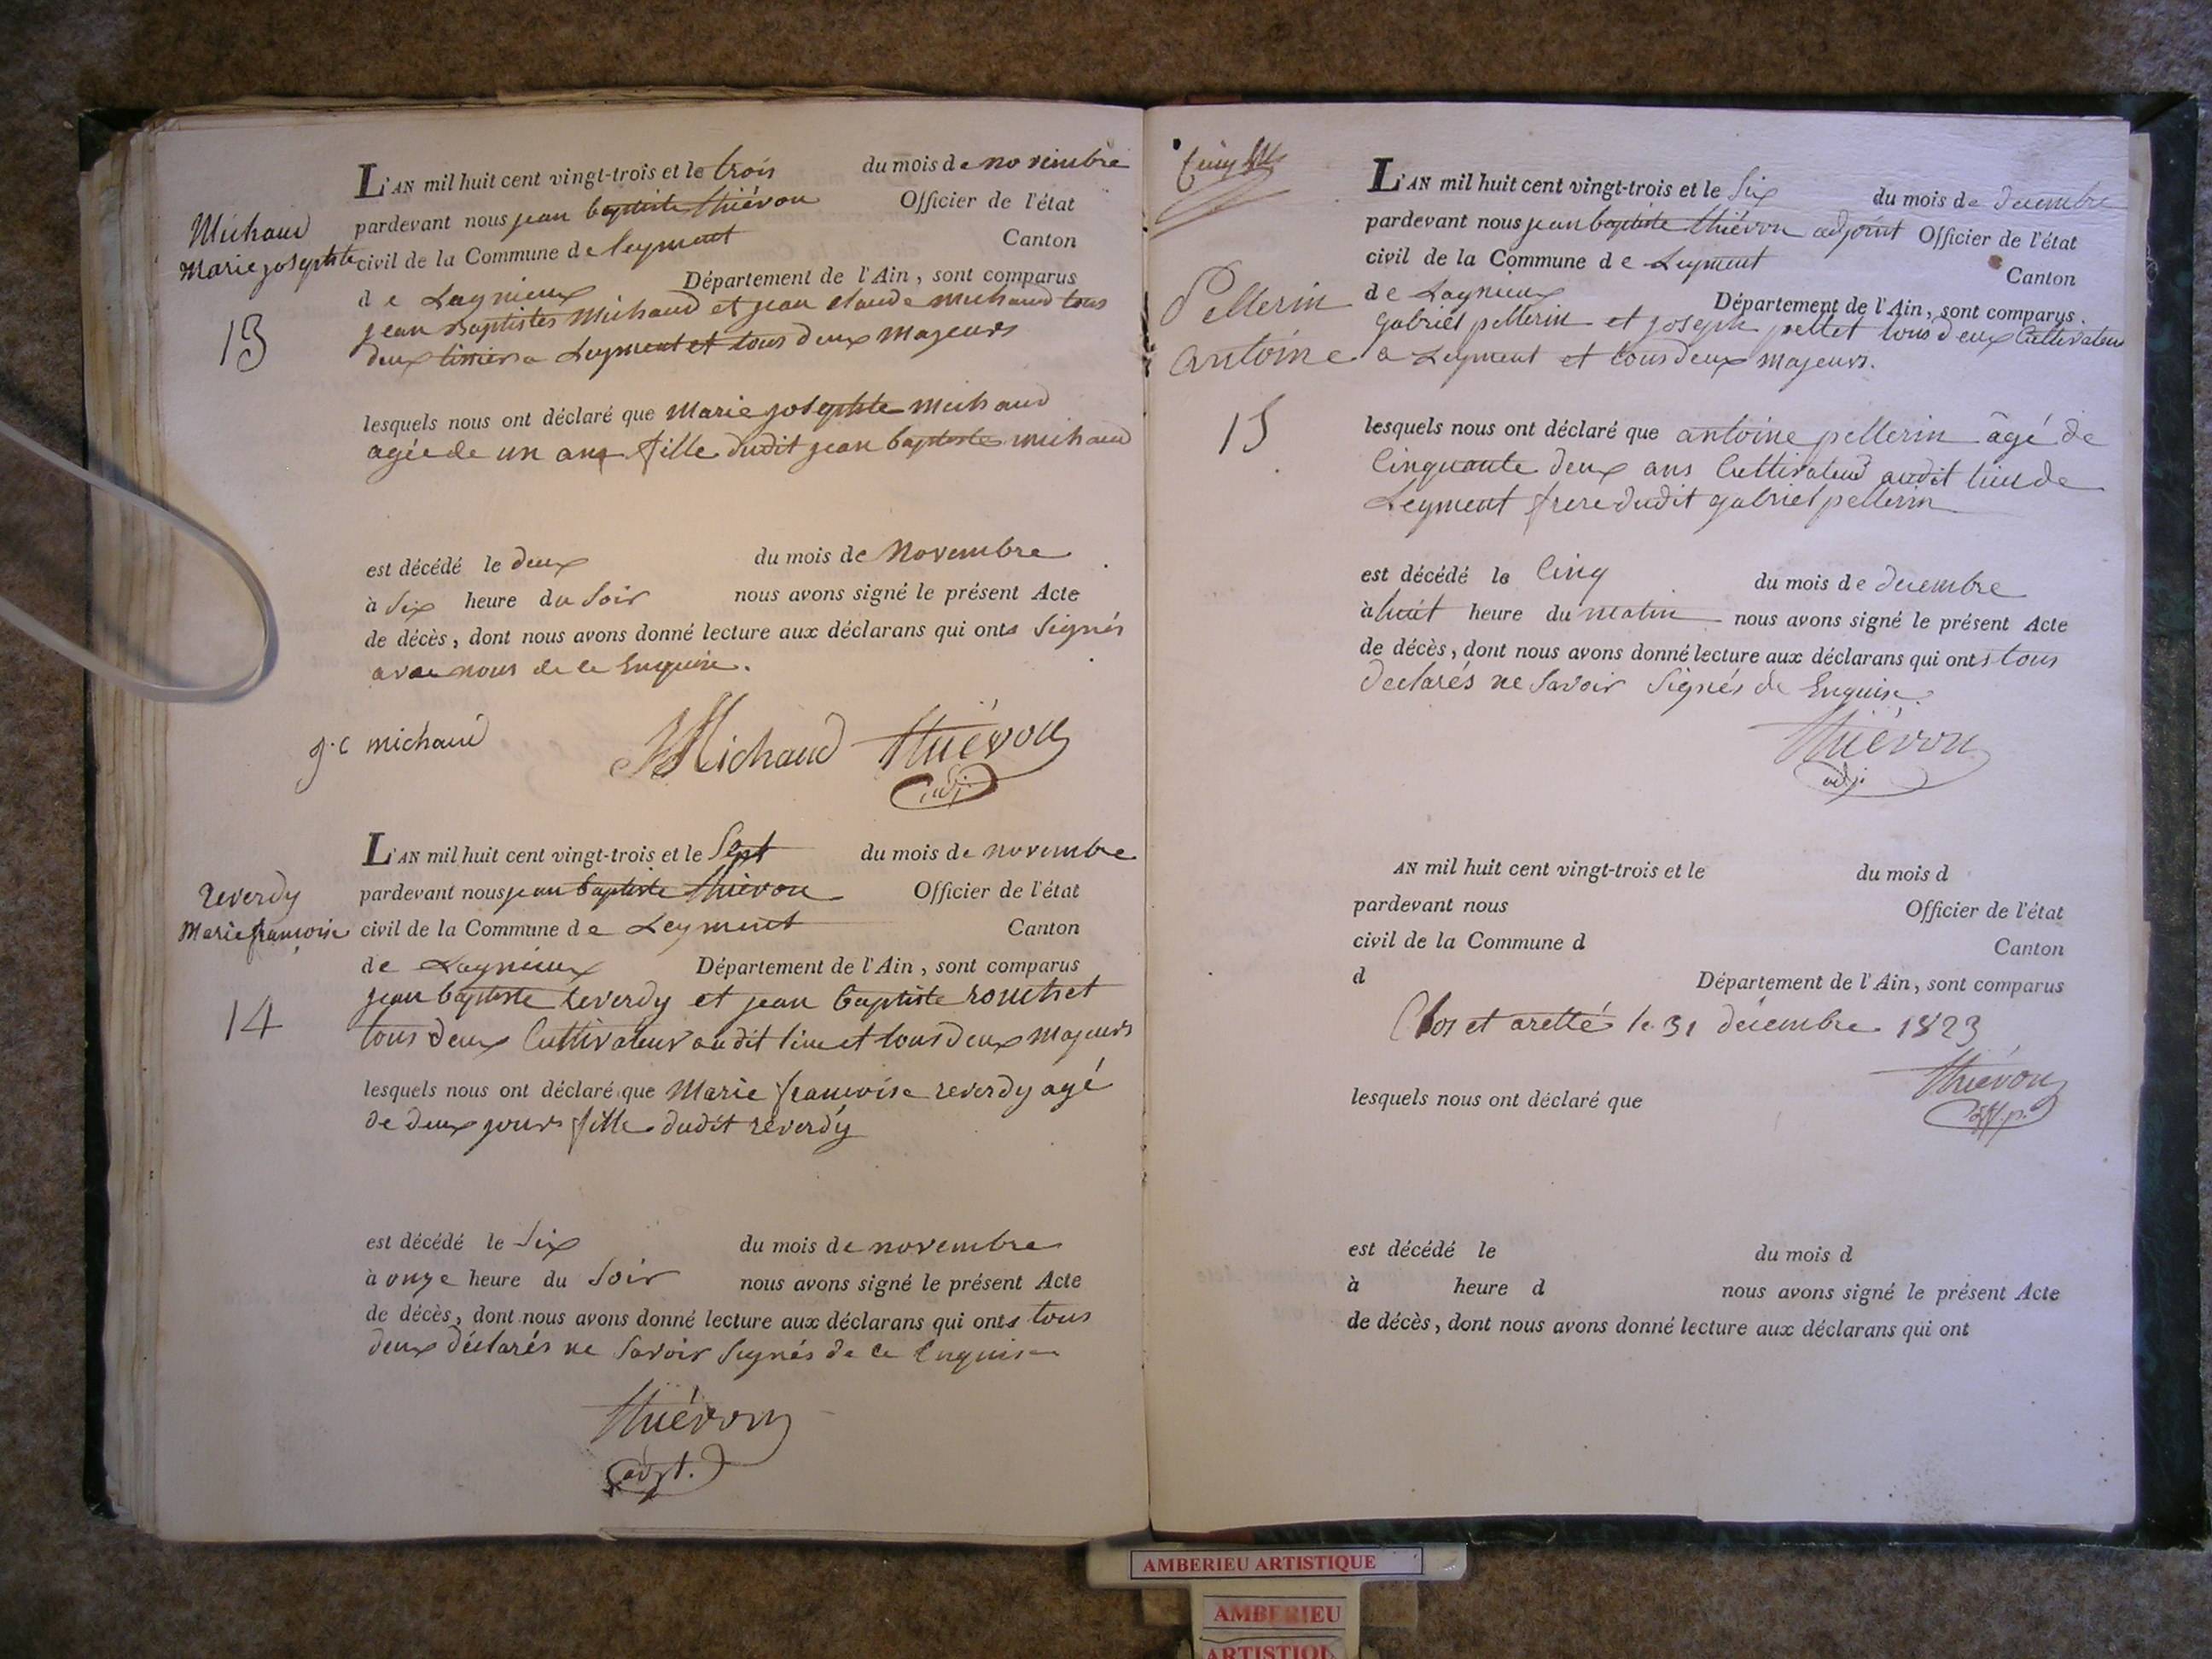 Michaud
Marie josephte
13
L'AN mil huit cent vingt-trois et le trois du mois de novembre
pardevant nous jean baptiste thiévon Officier de l'état
civil de la Commune de leyment Canton
de Lagnieux Département de l'Ain, sont comparus
jean Baptistes Michaud et jean claude michaud tous
deux a Leyment et tous deux majeurs
lesquels nous ont déclaré que Marie josephte michaud
agée de un ans fille dudit jean baptiste michaud
est décédé le deux du mois de Novembre
à Six heure du Soir nous avons signé le présent Acte
de décès, dont nous avons donné lecture aux déclarans qui onts Signés
avec nous de ce Enquise.
j. c michaud Michaud thiévon
adj.
reverdy
Marie francoise
14
L'AN mil huit cent vingt-trois et le Sept du mois de novembre
pardevant nous jean baptiste thiévon Officier de l'état
civil de la Commune de Leyment Canton
de Lagnieux Département de l'Ain, sont comparus
jean baptiste reverdy et jean baptiste
tous deux Cultivateur audit lieu et tous deux majeurs
lesquels nous ont déclaré que Marie francoise reverdy agé
de deux jours fille dudit reverdy
est décédé le Six du mois de novembre
à onze heure du Soir nous avons signé le présent Acte
de décès, dont nous avons donné lecture aux déclarans qui onts tous
deux déclarés ne Savoir Signés de ce Enquise
thiévon
adjt.
Pellerin
antoine
15
L'AN mil huit cent vingt-trois et le Six du mois de decembre
pardevant nous jean baptiste thiévon adjoint Officier de l'état
civil de la Commune de Leyment Canton
de Lagnieux Département de l'Ain, sont comparus.
gabriel pellerin et joseph pellet tous deux Cultivateur
a Leyment et tous deux majeurs.
lesquels nous ont déclaré que antoine pellerin âgé de
Cinquante deux ans Cultivateur audit lieu de
Leyment frere dudit gabriel pellerin
est décédé le Cinq du mois de decembre
à huit heure du matin nous avons signé le présent Acte
de décès, dont nous avons donné lecture aux déclarans qui onts tous
declarés ne Savoir Signés de Enquise.
thiévon
adj.
AN mil huit cent vingt-trois et le du mois d
pardevant nous Officier de l'état
civil de la Commune d Canton
d Département de l'Ain, sont comparus
Clos et aretté le 31 décembre 1823
thiévon
lesquels nous ont déclaré que
est décédé le du mois d
à heure d nous avons signé le présent Acte
de décès, dont nous avons donné lecture aux déclarans qui ont
AMBERIEU ARTISTIQUE
AMBERIEU